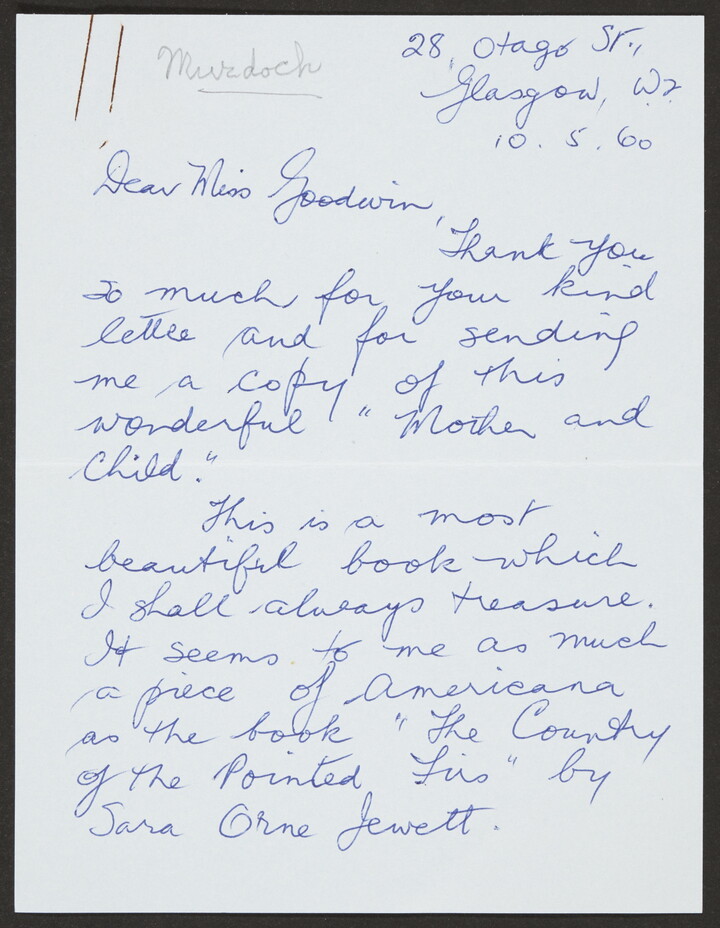 Murdoch
28, Otago St.,
Glasgow, W2
10.5.60
Dear Miss Goodwin,
Thank you
so much for your kind
letter and for sending
me a copy of this
wonderful "Mother and
Child."
This is a most
beautiful book which
I shall always treasure.
It seems to me as much
a piece of Americana
as the book "The Country
of the Pointed Firs" by
Sara Orne Jewett.